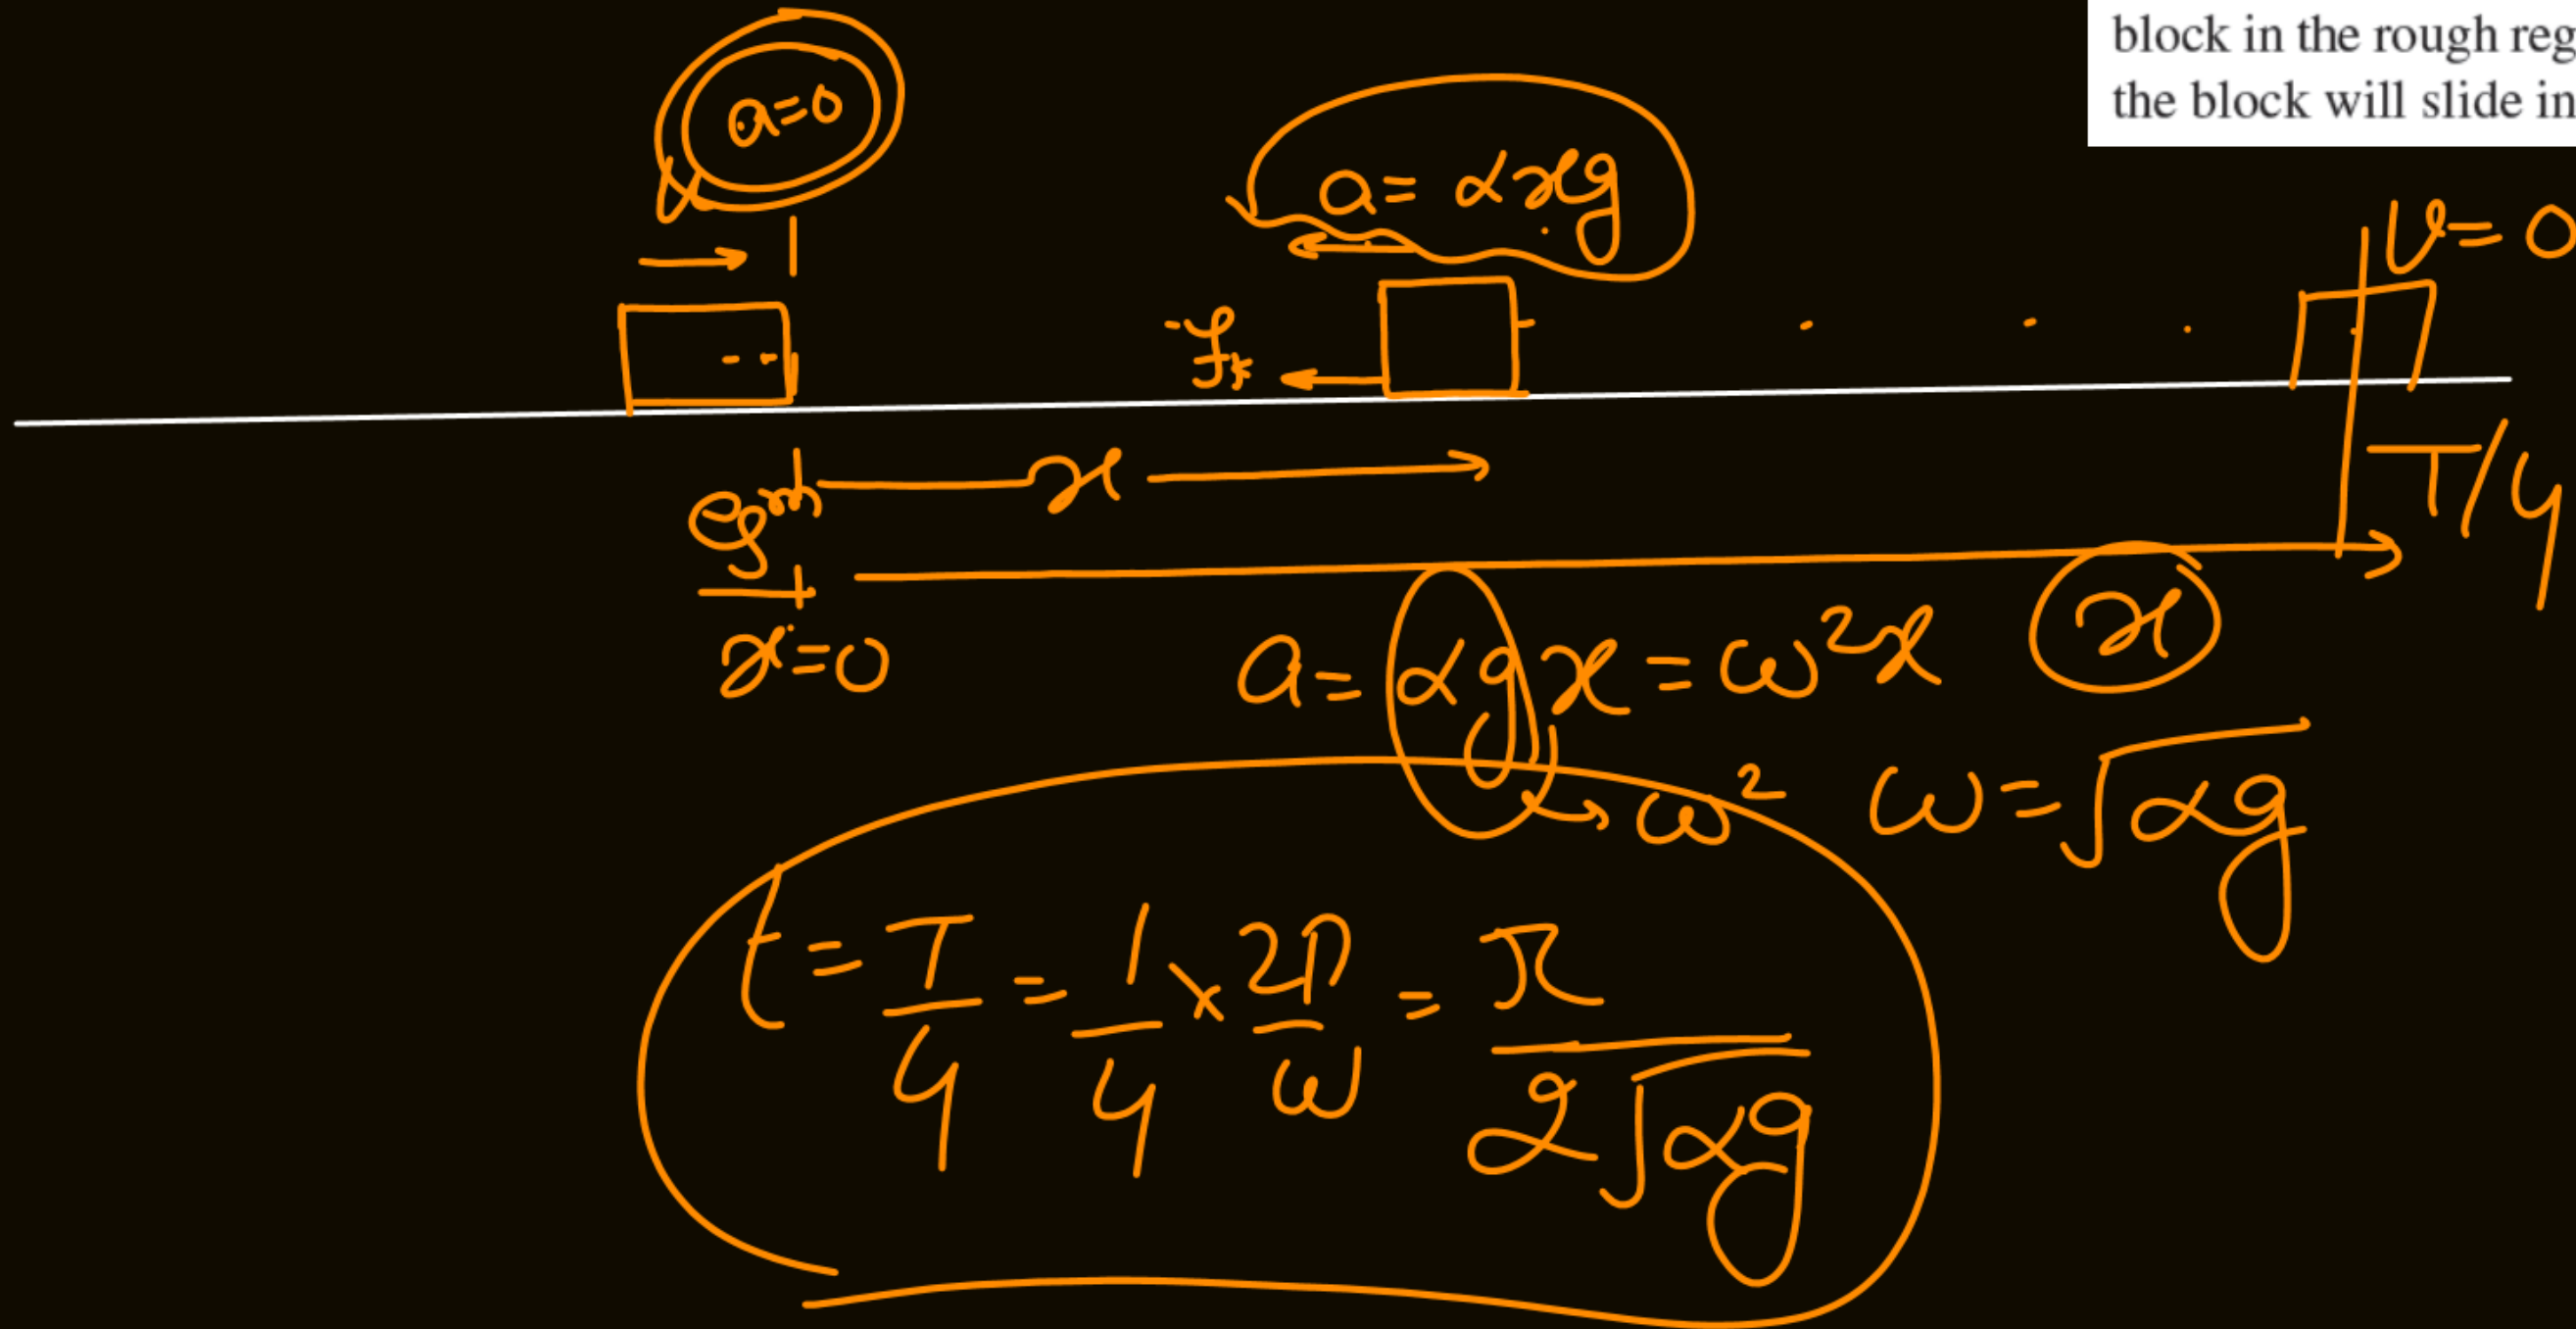 block in the rough reg
the block will slide in
a=0
a= αxg
v=0
fk
x
T/4
eqm
x=0
x
a= αgx = ω²x
ω²
ω=√αg
t = T/4 = 1/4 × 2π/ω = π/2√αg